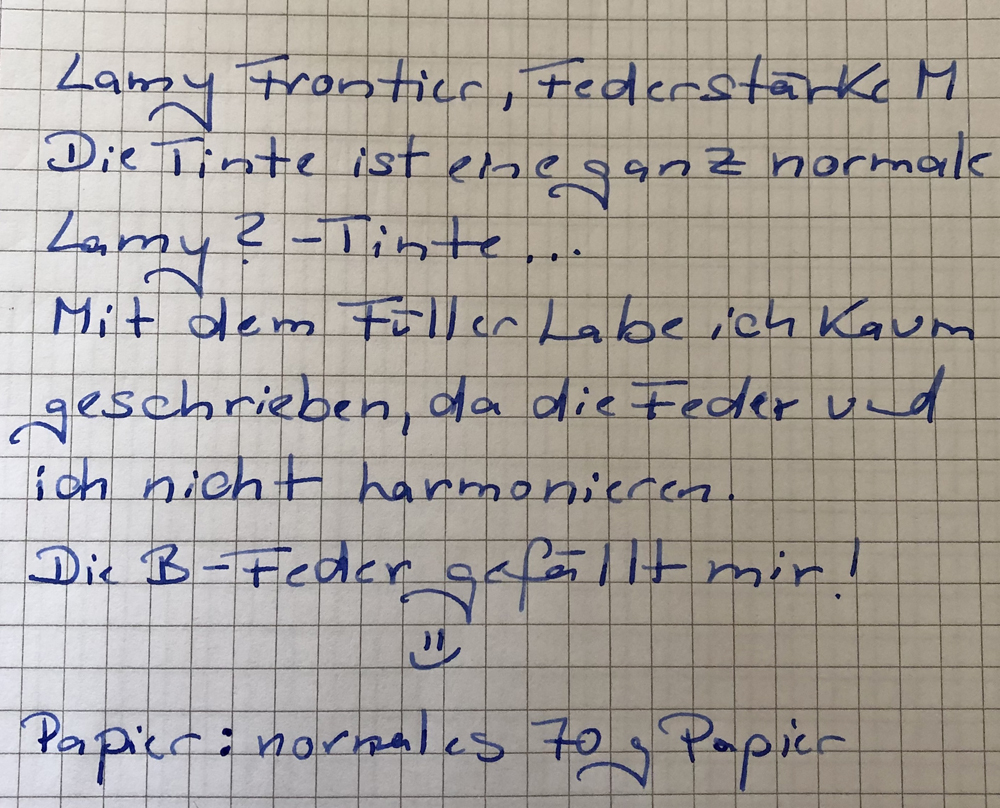 Lamy Frontier, Federstärke M
Die Tinte ist eine ganz normale
Lamy ? -Tinte ...
Mit dem Füller habe ich kaum
geschrieben, da die Feder und
ich nicht harmonieren.
Die B-Feder gefällt mir!
Papier: normales 70g Papier